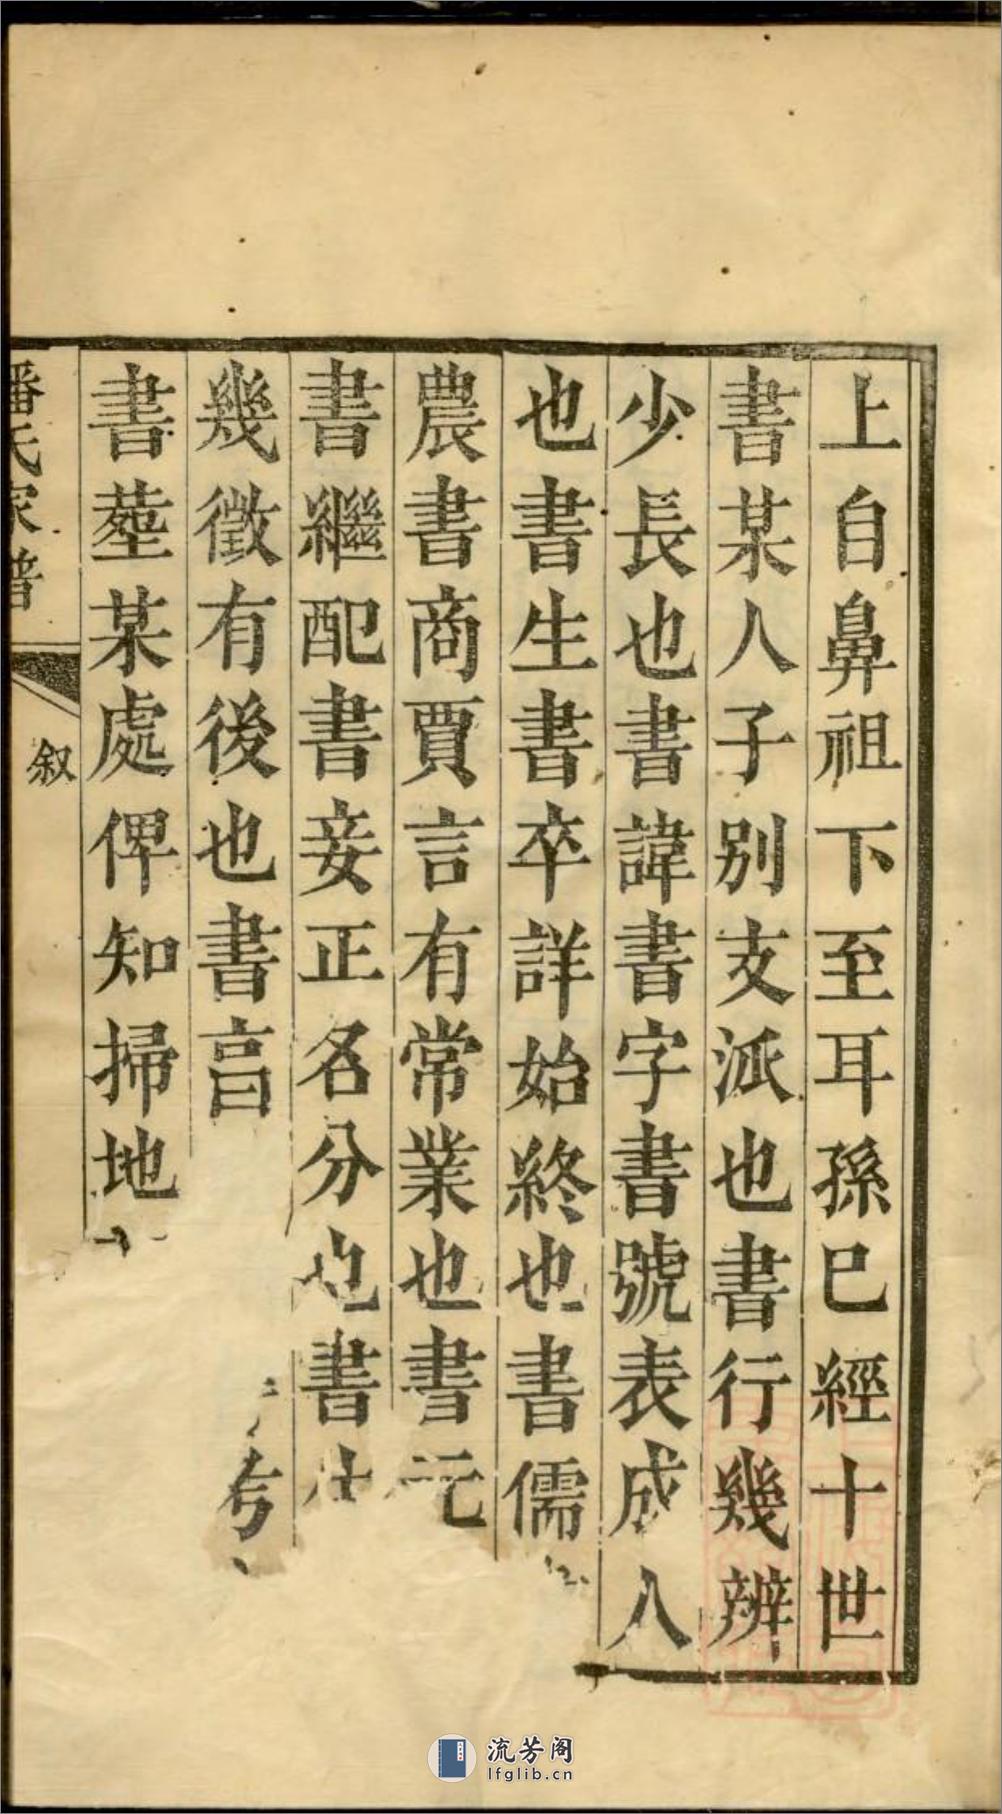 上自鼻祖下至耳孫巳經十世
書某人子別支派也書行幾辨
少長也書諱書字書號表成人
也書生書卒詳始終也書儒
農書商賈言有常業也書元
書繼配書妾正名分也書
幾徵有後也書
考
書塟某處俾知掃地
潘氏家譜
叙
流芳阁
lfglib.cn